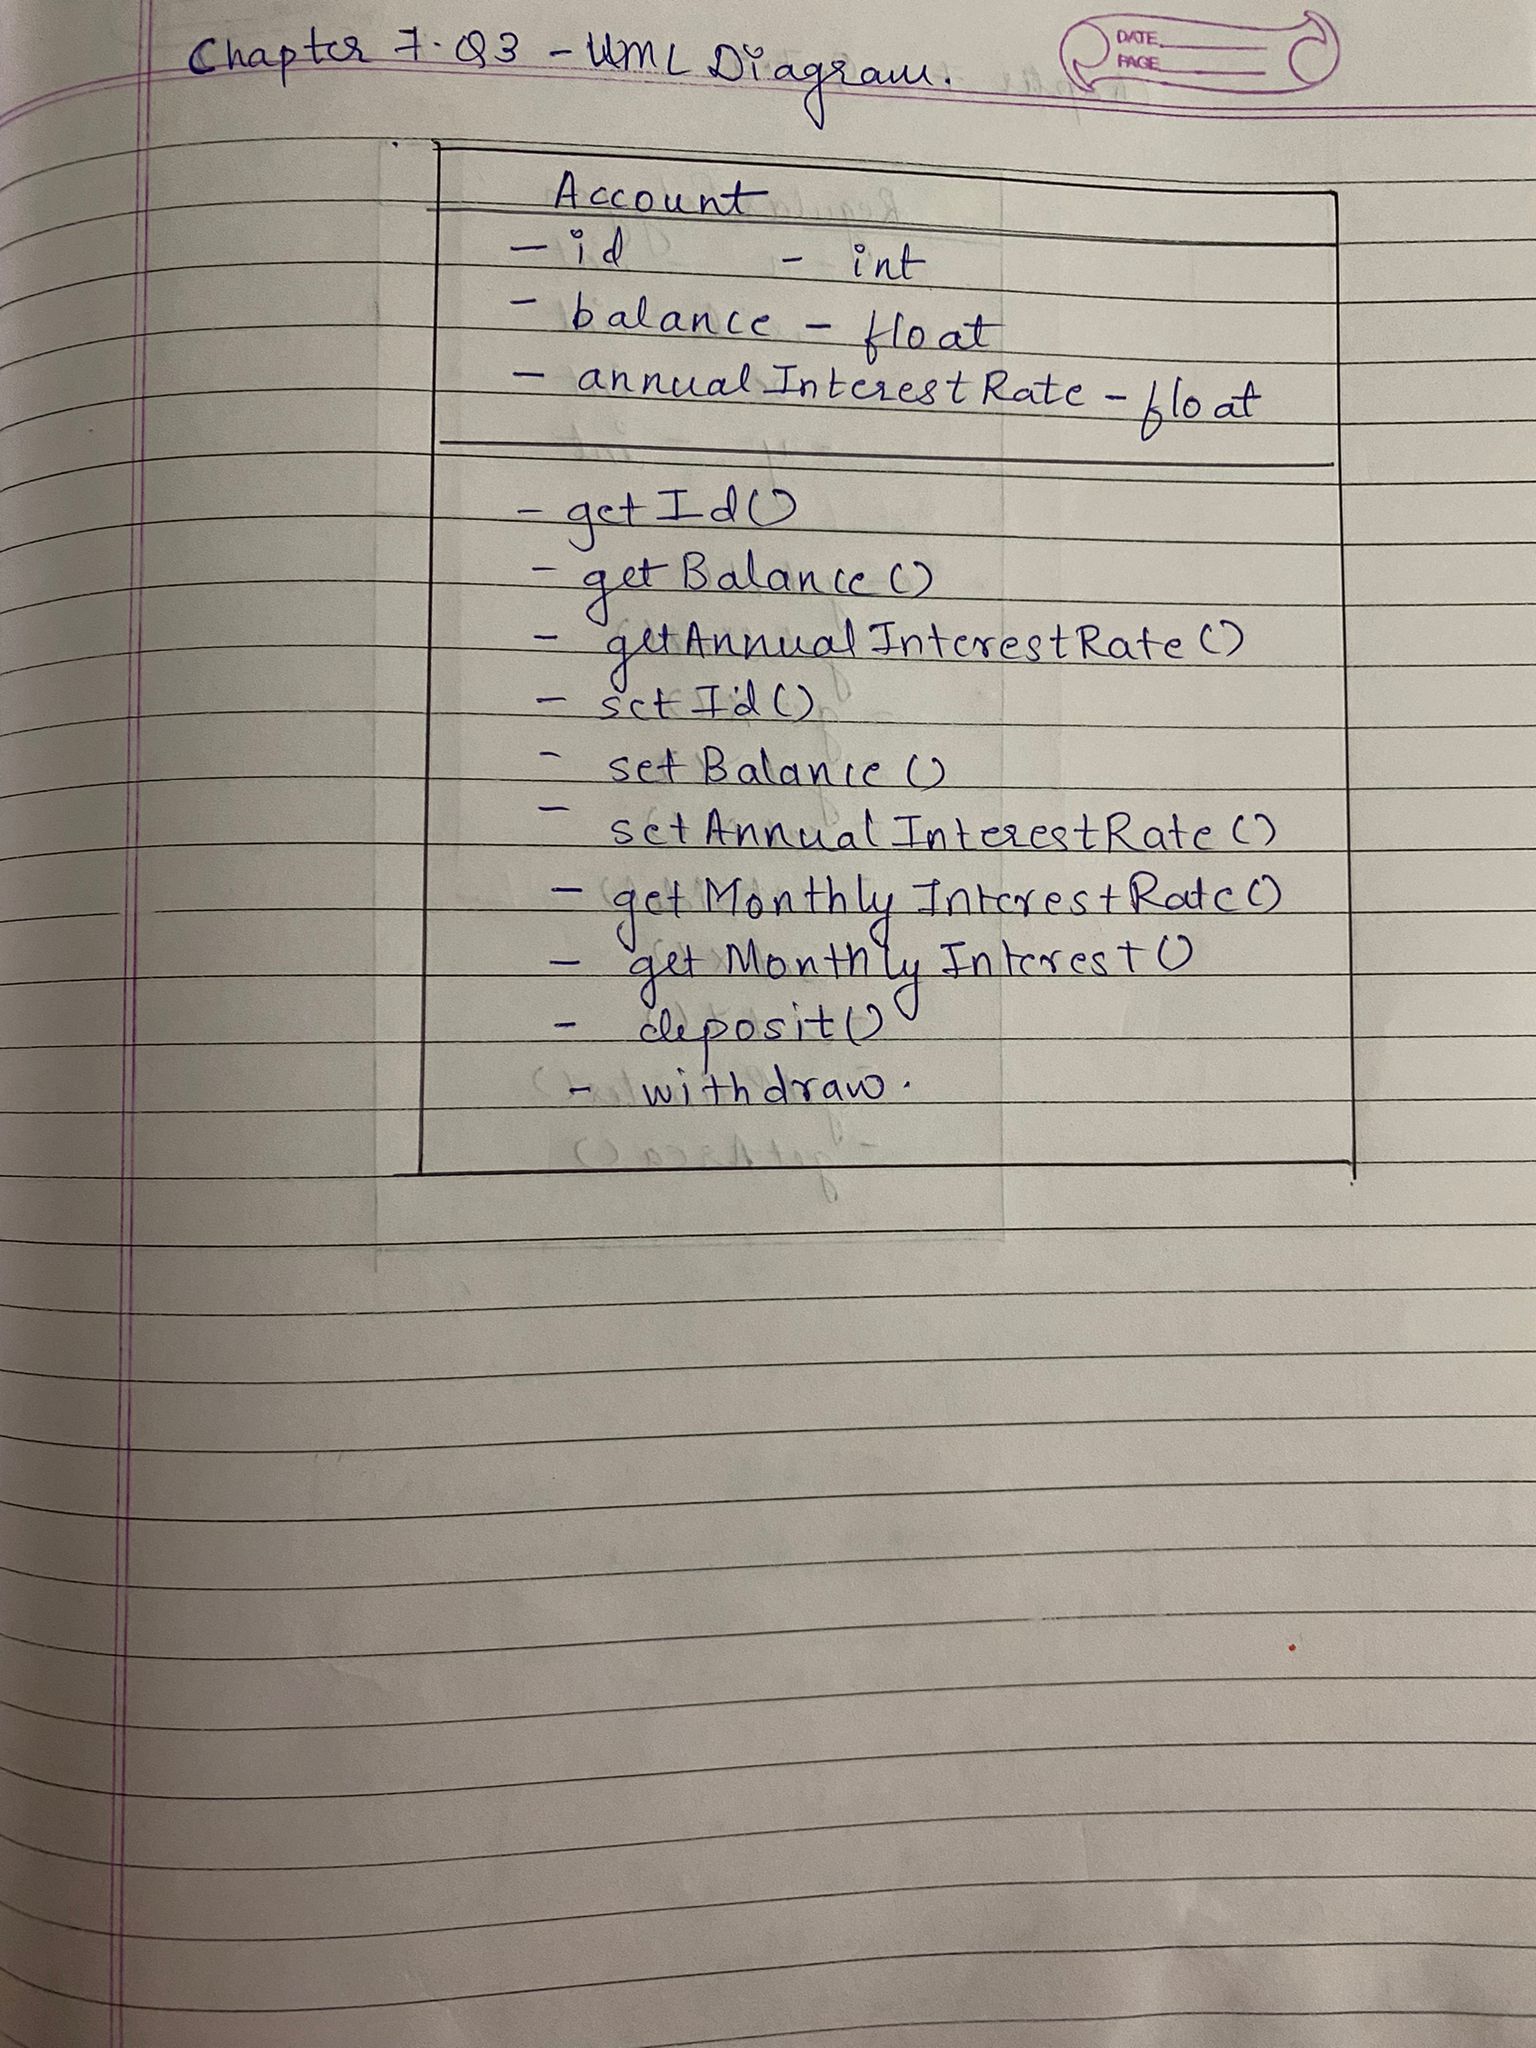 Chapter 7. Q3 - UML Diagram.
DATE
PAGE
Account
- id - int
- balance - float
- annualInterestRate - float
- getId()
- getBalance()
- getAnnualInterestRate()
- setId()
- setBalance()
- setAnnualInterestRate()
- getMonthlyInterestRate()
- getMonthlyInterest()
- deposit()
- withdraw.